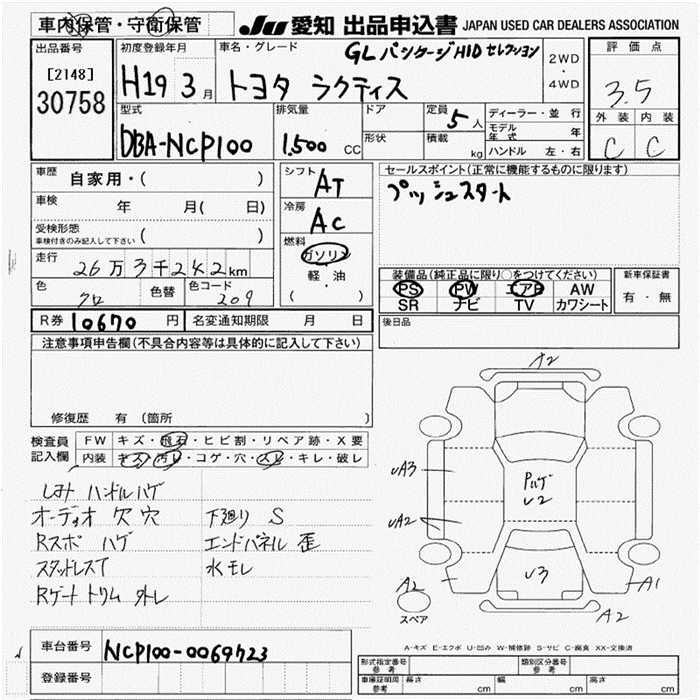 車内保管・守衛保管
JU 愛知 出品申込書 JAPAN USED CAR DEALERS ASSOCIATION
出品番号
[2148]
30758
初度登録年月
H19 3月
車名・グレード
GL パッケージHIDセレクション
トヨタ ラクティス
2WD
・
4WD
評価点
3.5
外装 内装
C C
型式
DBA-NCP100
排気量
1,500 CC
ドア
形状
定員 5人
積載 kg
ディーラー・並行
モデル年式 年
ハンドル 左・右
車歴 自家用・( )
車検 年 月( 日)
受検形態
車検付きのみ記入して下さい ( )
走行 26万3千242km
色 クロ 色替 色コード 209
シフト AT
冷房 AC
燃料
ガソリン
軽・油
( )
セールスポイント(正常に機能するものに限ります)
プッシュスタート
装備品(純正品に限り○をつけてください)
PS PW エアB AW
SR ナビ TV カワシート
新車保証書
有・無
R券 10670 円 名変通知期限 月 日
後日品
注意事項申告欄(不具合内容等は具体的に記入して下さい)
修復歴 有 (箇所 )
検査員記入欄
FW キズ・飛石・ヒビ割・リペア跡・X要
内装 キズ・汚レ・コゲ・穴・スレ・キレ・破レ
ハンドルハゲ
オーディオ 欠 穴 下廻り S
Rスポ ハゲ エンドパネル 歪
スタッドレスT 水モレ
Rゲートトリム 外レ
A2
UA3
UA2
Pハゲ
U2
U3
A2
A1
A2
スペア
A-キズ E-エクボ U-凹み W-補修跡 S-サビ C-腐食 XX-交換済
車台番号 NCP100-0069723
登録番号
型式指定番号 参考
類別区分番号 参考
車庫証明用 参考 長さ cm 幅 cm 高さ cm